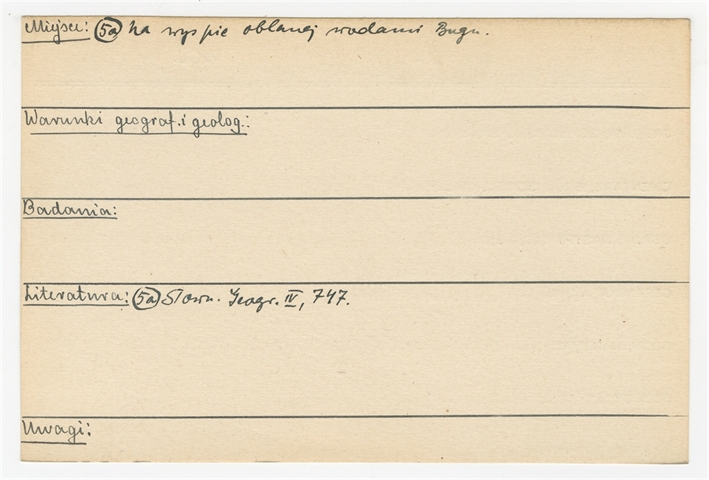 Miejsce: 5a na wyspie oblanej wodami Bugu.
Warunki geograf. i geolog.:
Badania:
Literatura: 5a Słown. Geogr. IV, 747.
Uwagi: